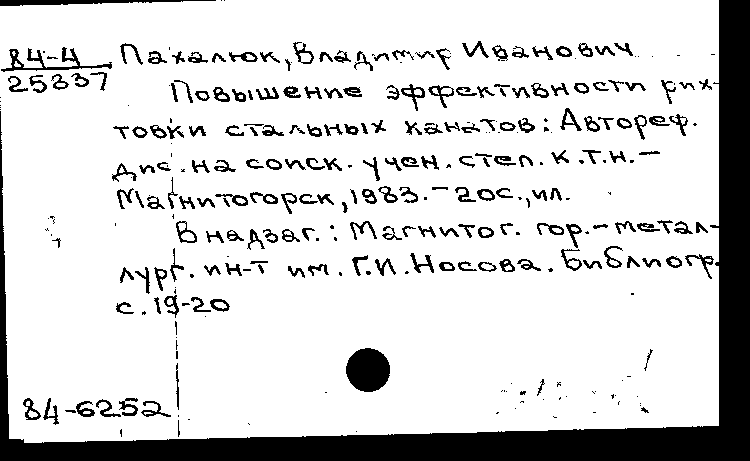 84-4 Пахалюк, Владимир Иванович
25337
Повышение эффективности рих-
товки стальных канатов: Автореф.
дис. на соиск. учен. степ. к.т.н. –
Магнитогорск, 1983. – 20с., ил.
В надзаг.: Магнитог. гор.-метал-
лург. ин-т им. Г.И. Носова. Библиогр.
с. 19-20
84-6252